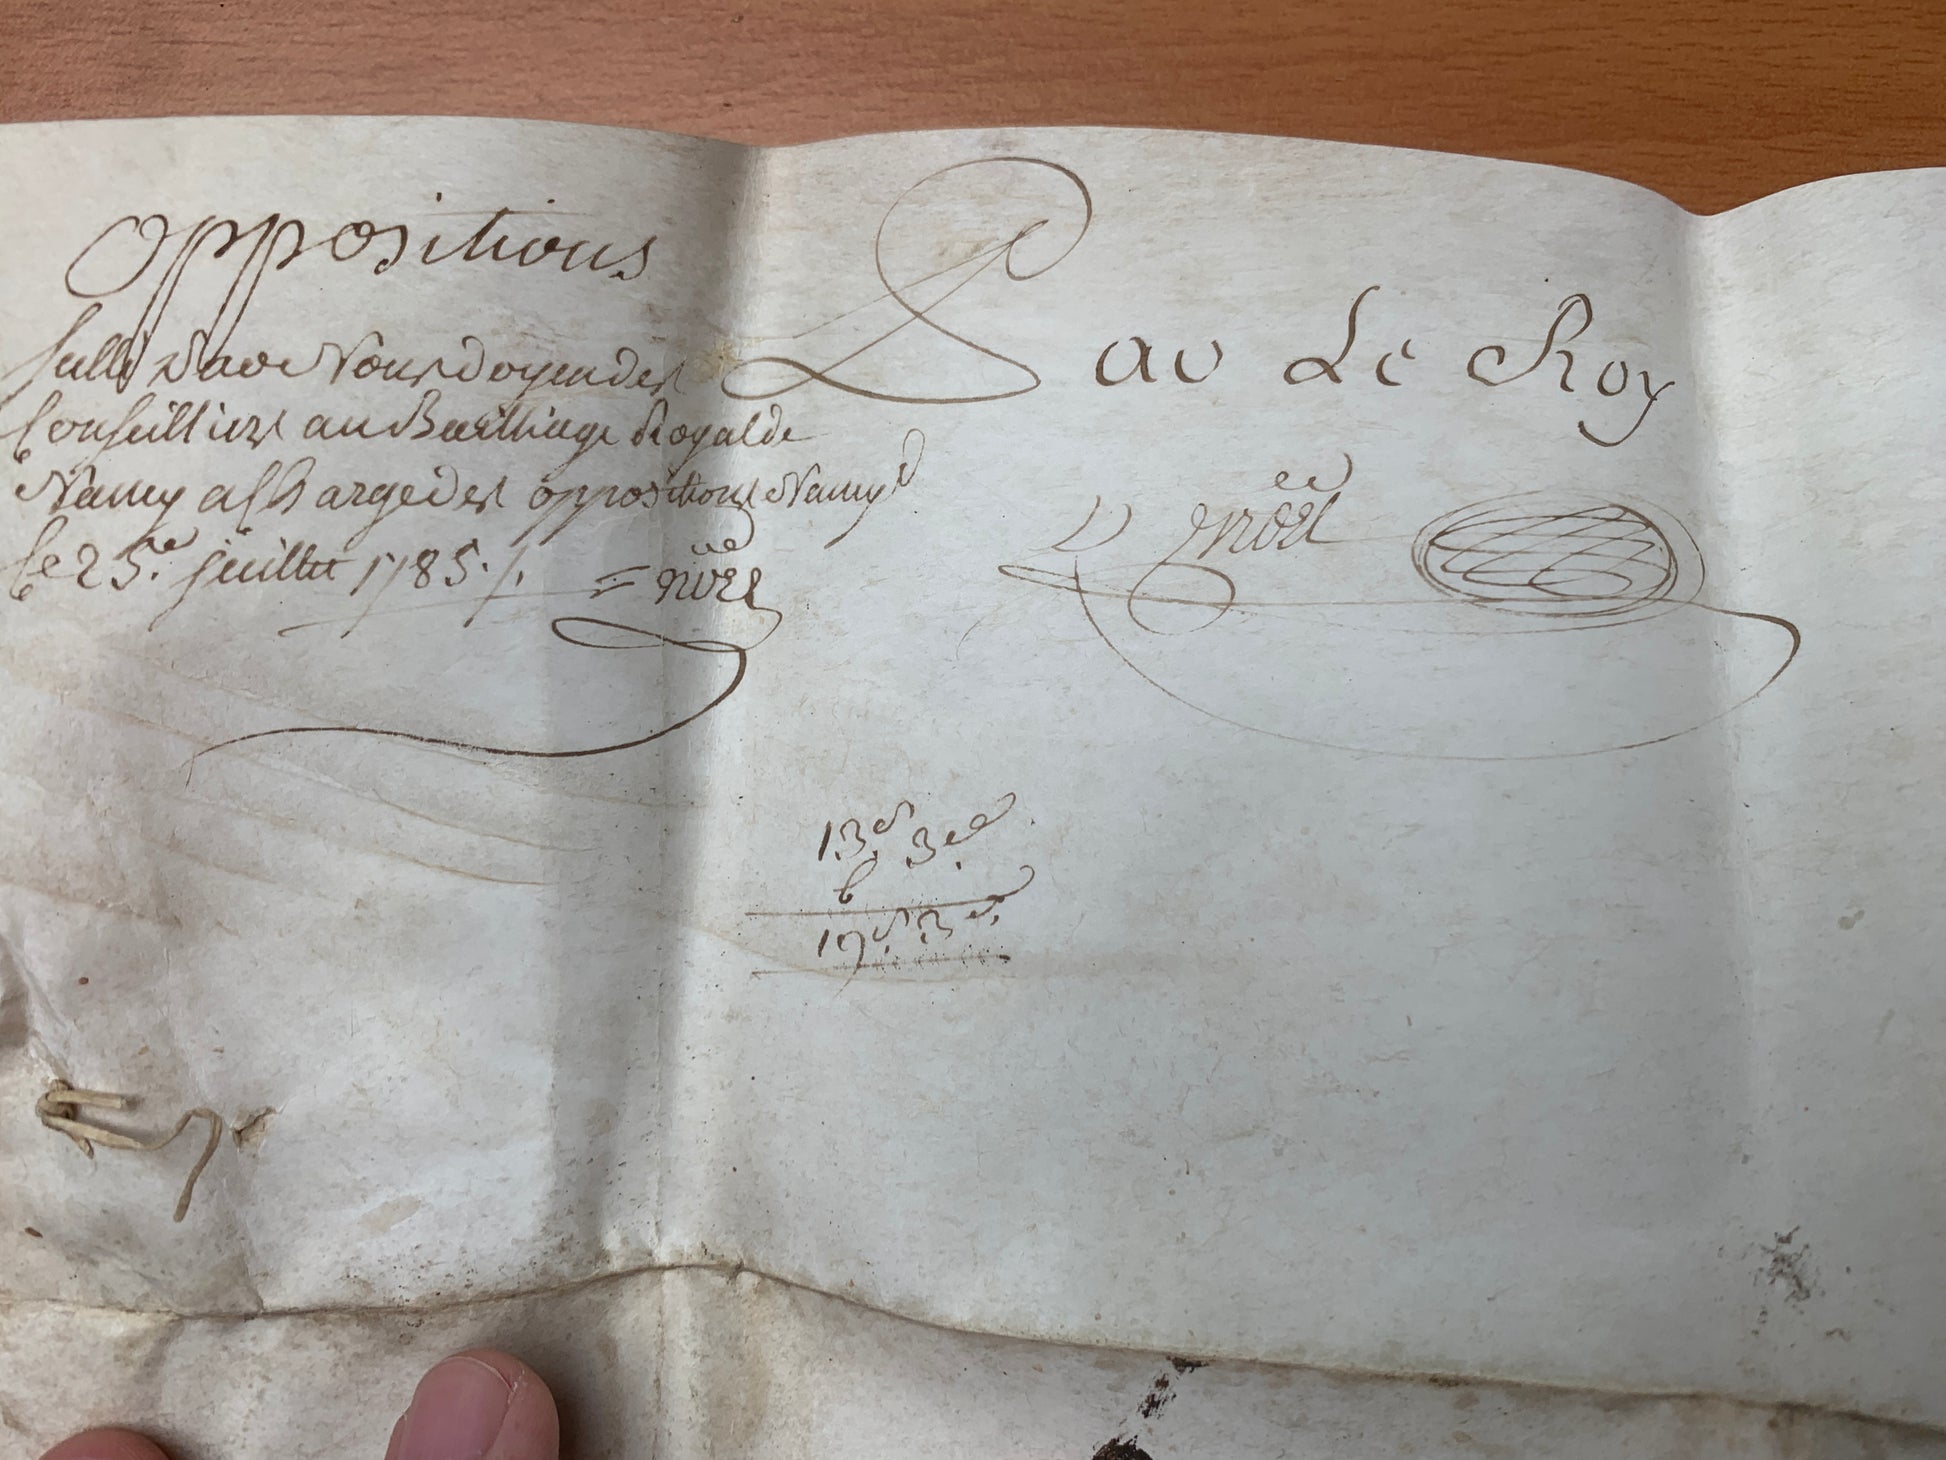 oppositions
scellé par Nous doyen des
Conseilliers au Bailliage Royal de
Nancy a Charge des oppositions Nancy
Le 25.e juillet 1785 ./.
noël
Par Le Roy
noël
13 3
6
19 3